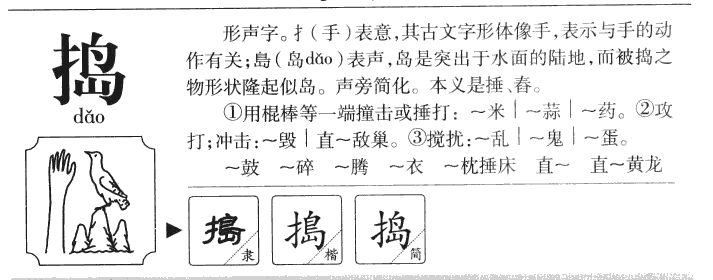 捣
dǎo
形声字。扌(手)表意,其古文字形体像手,表示与手的动
作有关;島(岛dǎo)表声,岛是突出于水面的陆地,而被捣之
物形状隆起似岛。声旁简化。本义是捶、舂。
①用棍棒等一端撞击或捶打:～米｜～蒜｜～药。②攻
打;冲击:～毁｜直～敌巢。③搅扰:～乱｜～鬼｜～蛋。
～鼓 ～碎 ～腾 ～衣 ～枕捶床 直～ 直～黄龙
搗 隶 搗 楷 捣 简